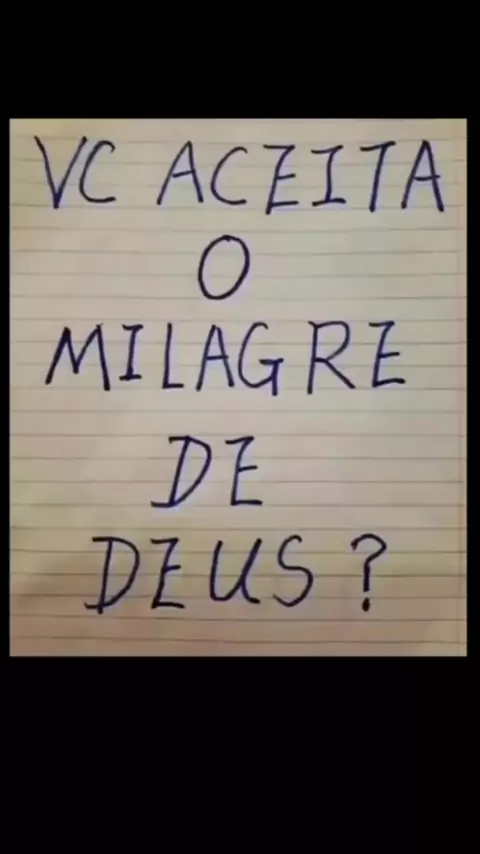 VC ACEITA
O
MILAGRE
DE
DEUS?